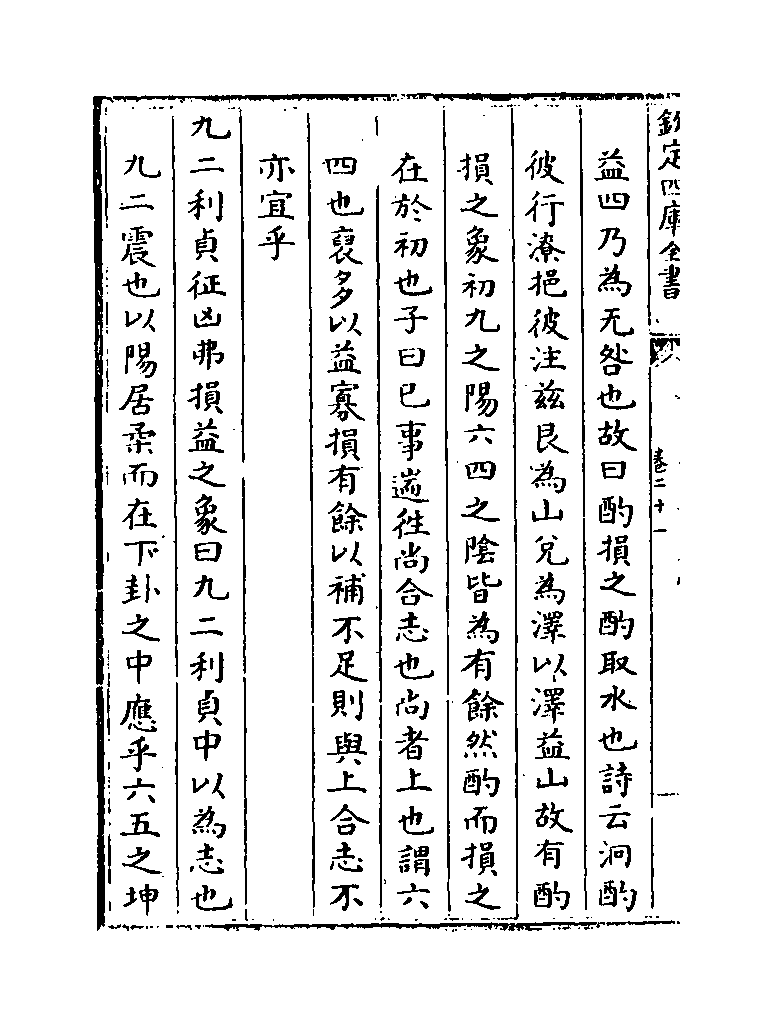 欽定四庫全書
卷二十一
益四乃為无咎也故曰酌損之酌取水也詩云泂酌
彼行潦挹彼注兹艮為山兌為澤以澤益山故有酌
損之象初九之陽六四之陰皆為有餘然酌而損之
在於初也子曰已事遄徃尚合志也尚者上也謂六
四也裒多以益寡損有餘以補不足則與上合志不
亦宜乎
九二利貞征凶弗損益之象曰九二利貞中以為志也
九二震也以陽居柔而在下卦之中應乎六五之坤